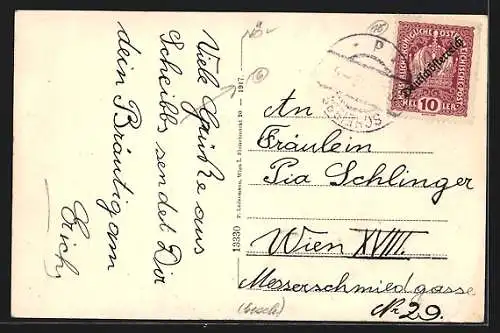 Viele Grüße aus
Scheibbs sendet Dir
dein Bräutigam
Erich
13330 P. Ledermann, Wien I. 20 — 1917.
KAISERLICHE KÖNIGLICHE ÖSTERREICHISCHE POST
Deutschösterreich
HELLER 10 HELLER
An
Fräulein
Pia Schlinger
Wien XVIII.
Messerschmiedgasse
Nr 29.